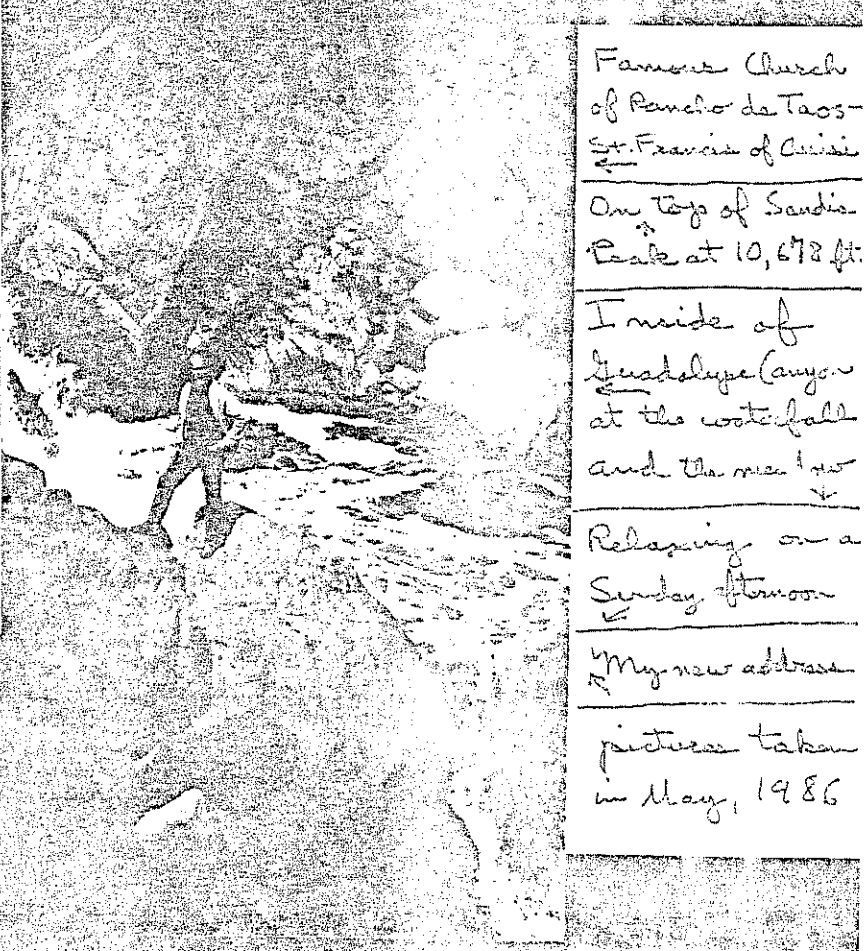 Famous Church
of Rancho de Taos-
St. Francis of Assisi
On Top of Sandia
Peak at 10,678 ft.
Inside of
Guadalupe Canyon
at the waterfall
and the
Relaxing on a
Sunday fternoon
My new address
pictures taken
in May, 1986